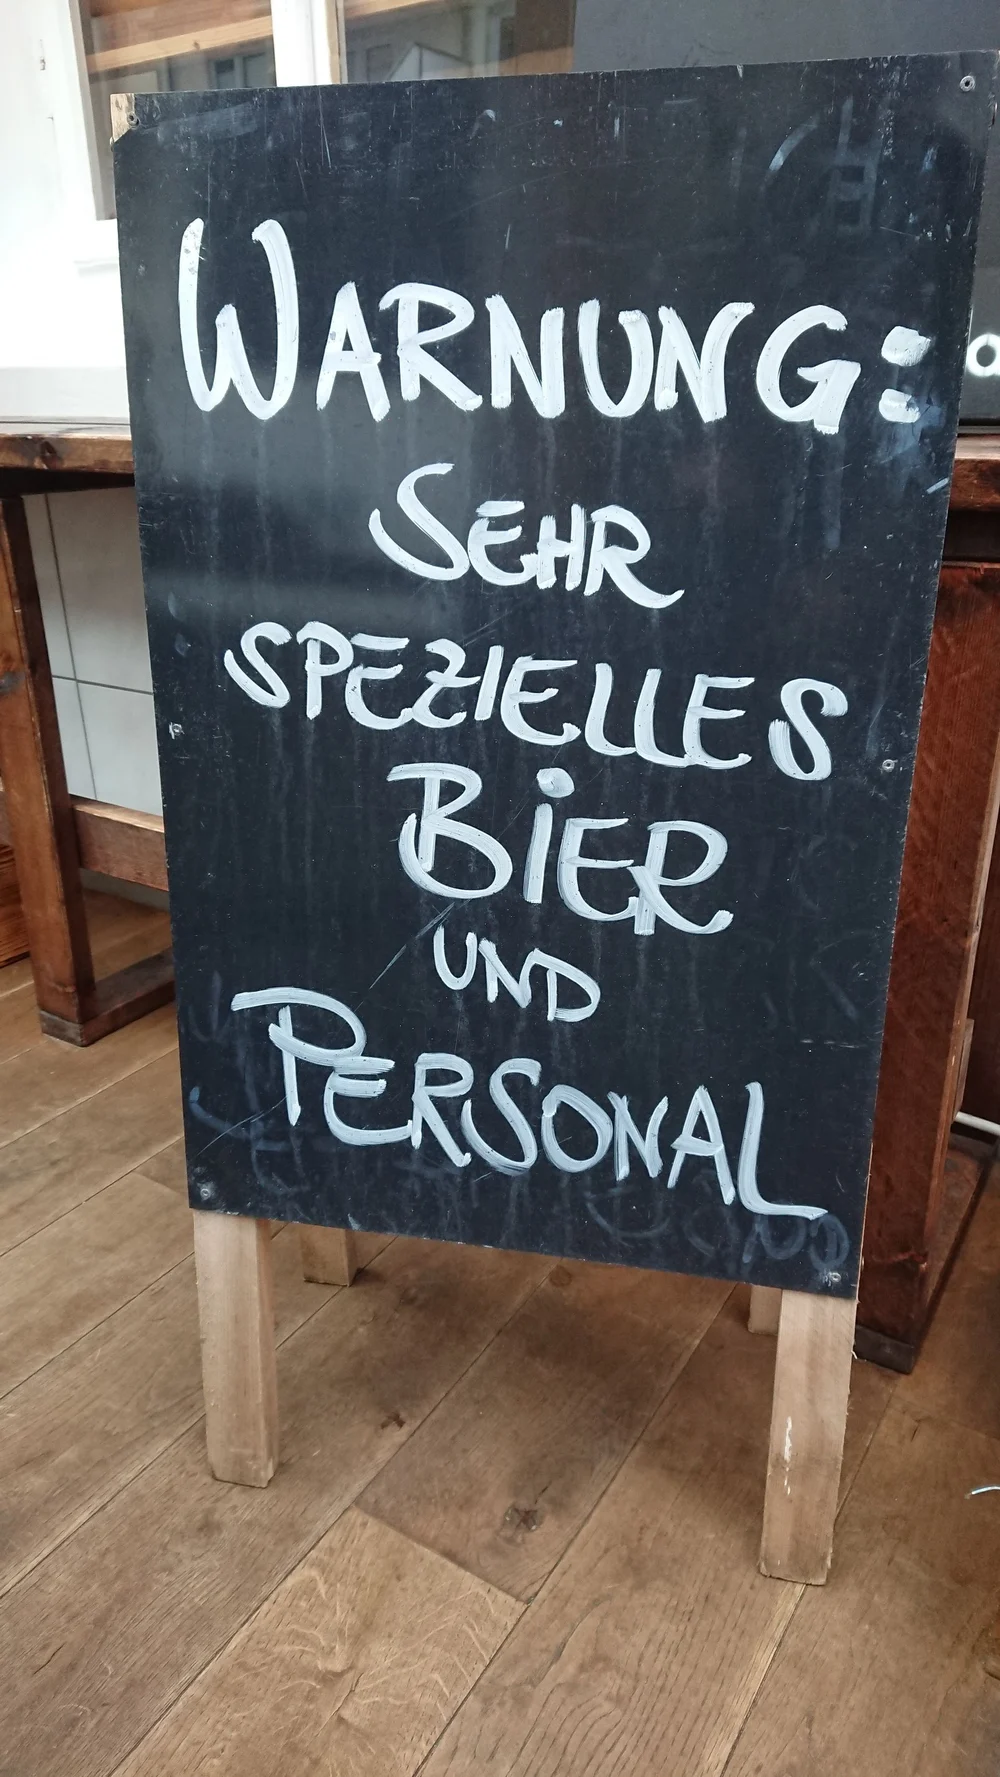 WARNUNG:
SEHR
SPEZIELLES
BiER
UND
PERSONAL